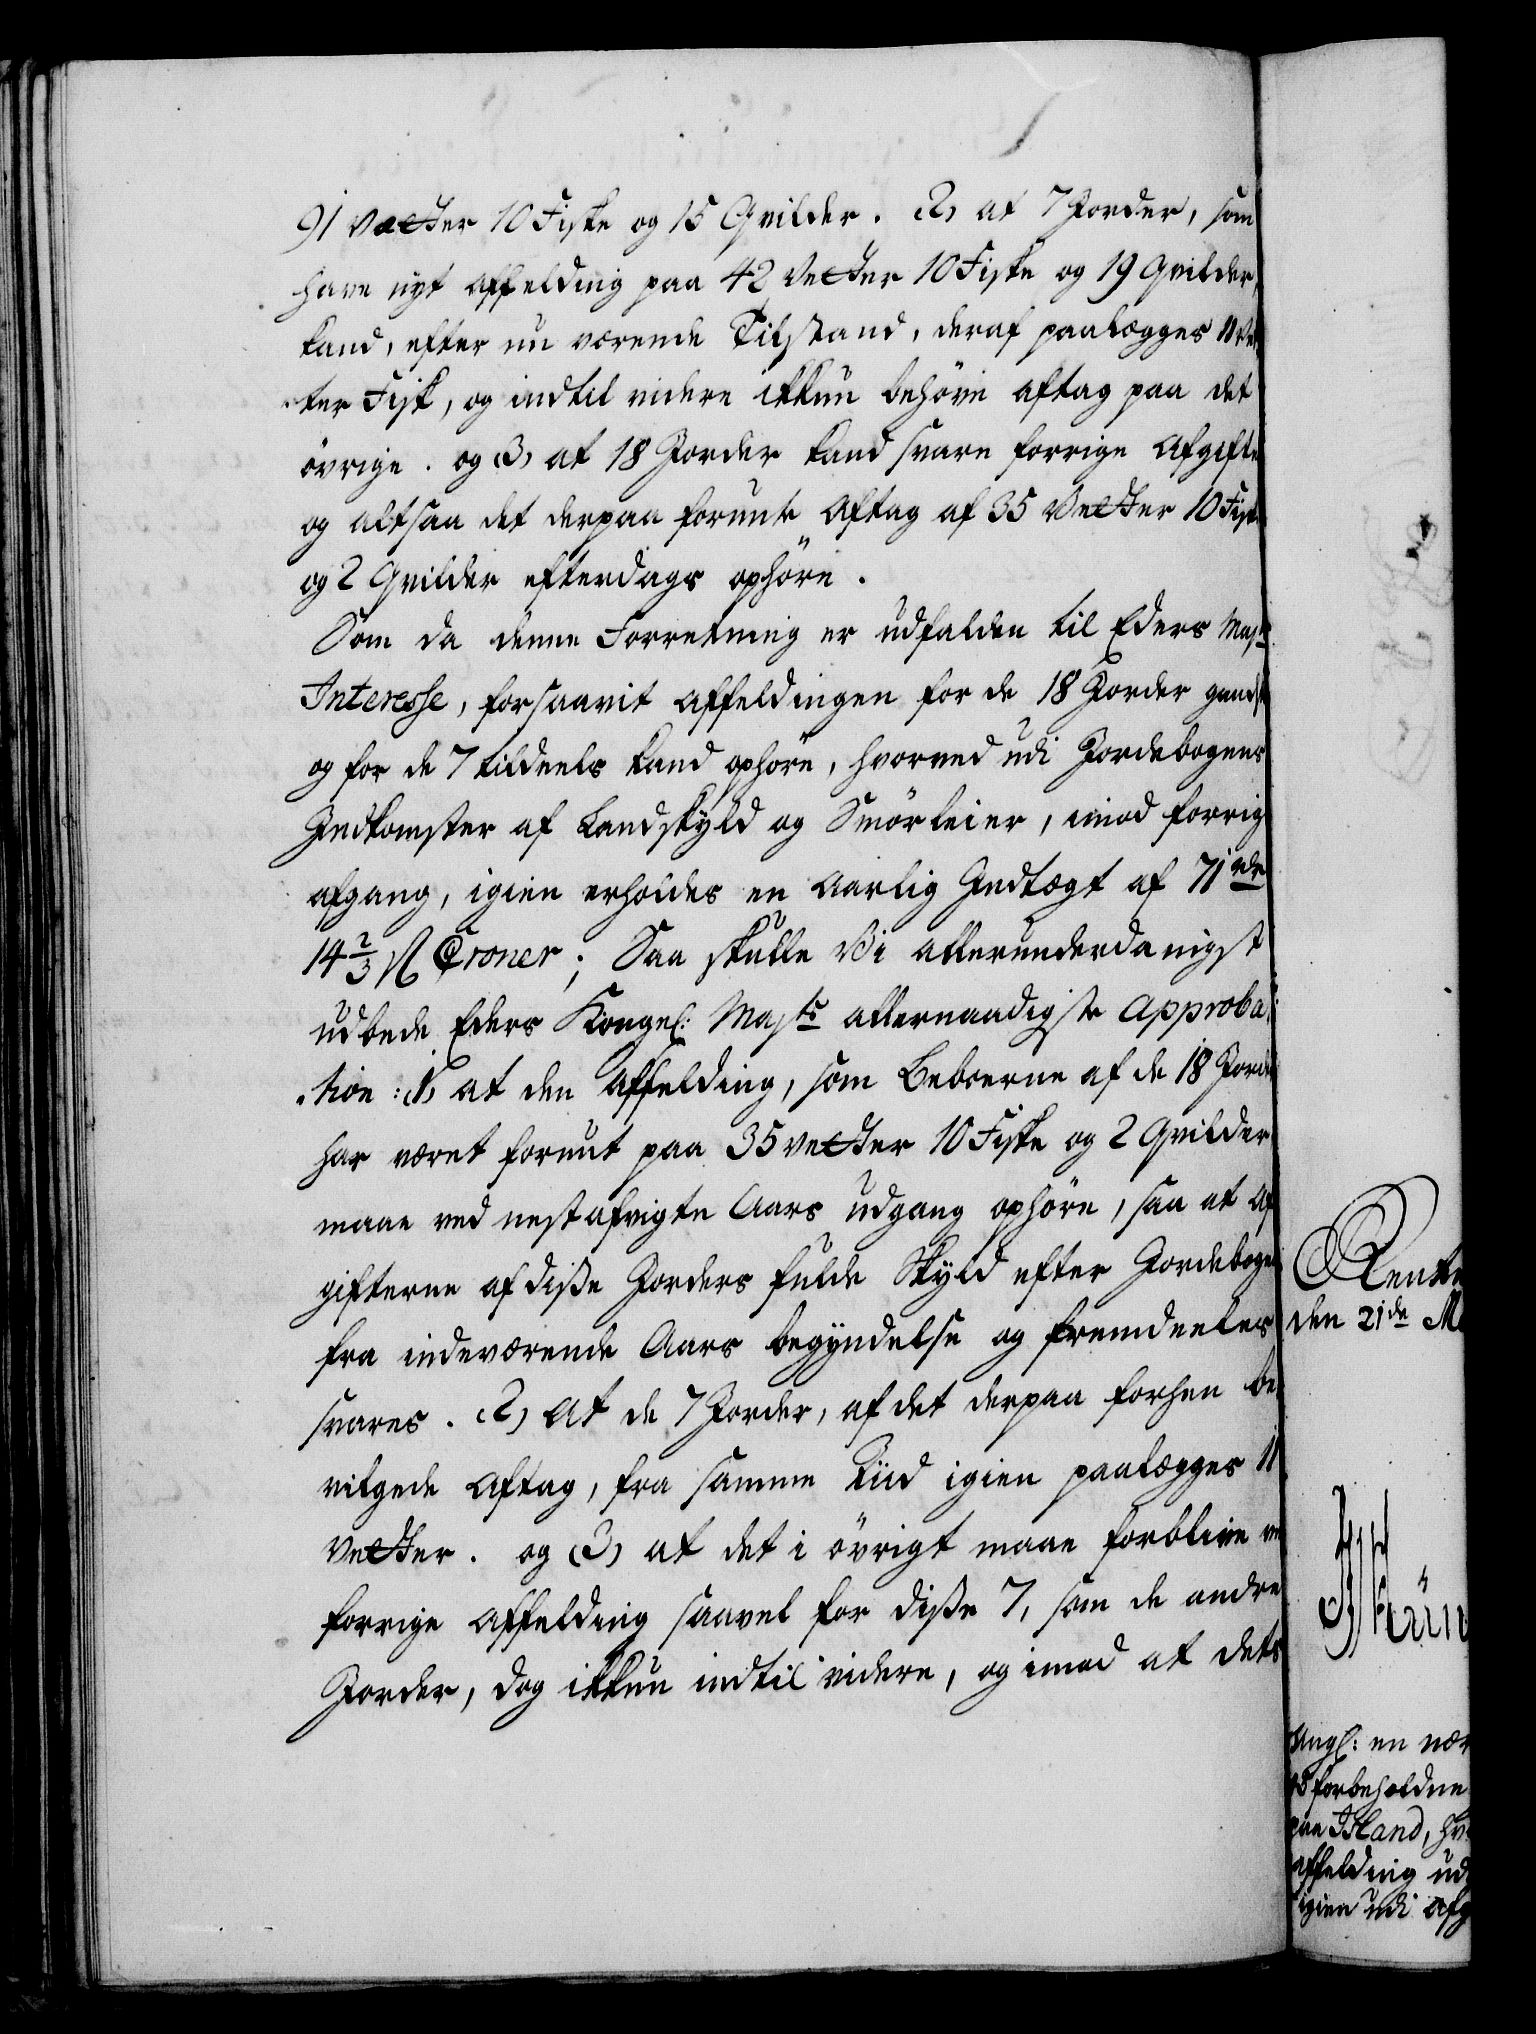 91 Vætter 10 Fiske og 15 Qvilder. (2) at 7 Jorder, som
have nyt Affelding paa 42 Vetter 10 Fiske og 19 Qvilder,
kand, efter nu værende Tilstand, deraf paalægges 11 Vet
ter Fisk, og indtil videre ikkun behöve aftag paa det
övrige. og (3) at 18 Jorder kand svare forrige Afgifter
og altsaa det derpaa forunte Aftag af 35 Vetter 10 Fiske
og 2 Qvilder efterdags ophöre.
Som da denne Forretning er udfalden til Eders Majts
Interesse, forsaavit Affeldingen for de 18 Jorder gandske
og for de 7 tildeels kand ophöre, hvorved udi Jordebogens
Indkomster af Landskyld og Smörleier, imod forrig
afgang, igien erholdes en aarlig Indtægt af 71 rdr
14 2/3 ß Croner; Saa skulle Vi allerunderdanigst
udbede Eders Kongel: Majts allernaadigste Approba-
tion: (1) at den Affelding, som Beboerne af de 18 Jorder
har været forunt paa 35 Vetter 10 Fiske og 2 Qvilder
maae ved nestafvigte Aars udgang ophöre, saa at Af
gifterne af disse Jorders fulde Skyld efter Jordebogen
fra indeværende Aars begyndelse og fremdeeles
svares. (2) at de 7 Jorder, af det derpaa forhen be-
vilgede Aftag, fra samme Tiid igien paalægges 11
Vetter. og (3) at det i övrigt maae forblive ved
forrige Affelding saavel for disse 7, som de andre
Jorder, dog ikkun indtil videre, og imod at dets
Rente
den 21de M
Angl: en nær
forbeholdne
paa Island, hv
affelding ud
igien udi afg